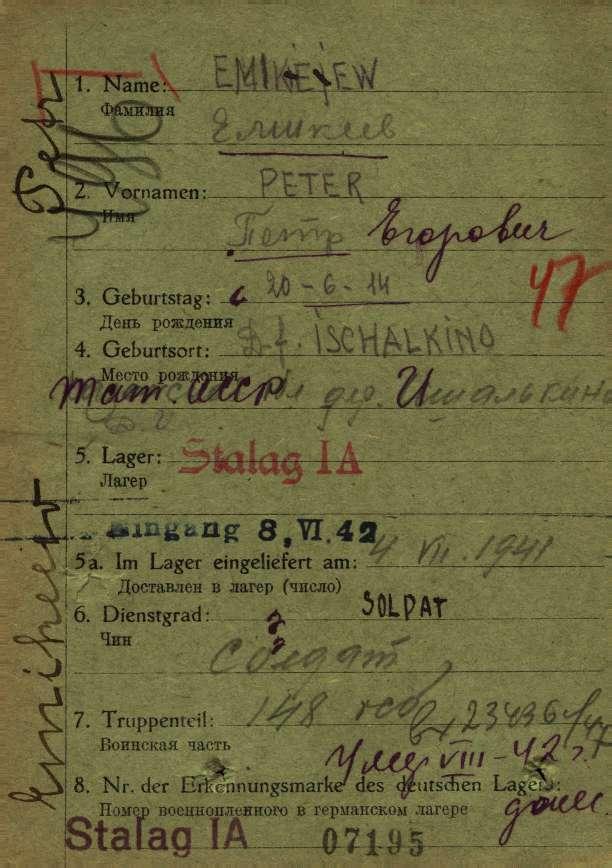 1. Name: EMIKEJEW
Фамилия
Емикеев
2. Vornamen: PETER
Имя
Петр Егорович
3. Geburtstag: 20-6-14
День рождения
47
4. Geburtsort: D.f. ISCHALKINO
Место рождения
Тат АССР дер. Ишалькино
5. Lager: Stalag IA
Лагер
Eingang 8. VI. 42
5a. Im Lager eingeliefert am: 4 VII. 1941
Доставлен в лагер (число)
6. Dienstgrad: SOLDAT
Чин
Солдат
7. Truppenteil: 148
Воинская часть
VIII-42 г.
8. Nr. der Erkennungsmarke des deutschen Lagers:
Номер военнопленного в германском лагере
Stalag IA 07195
Emikeew
Petr